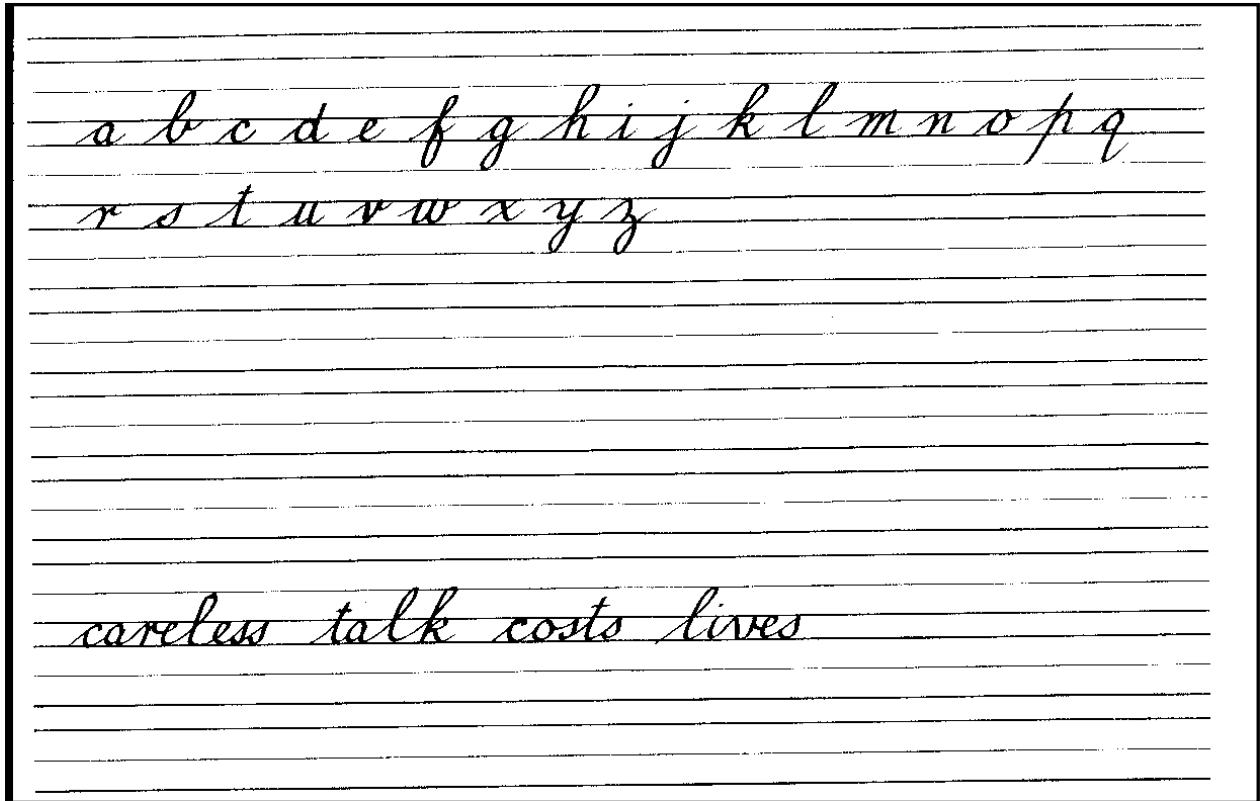 a b c d e f g h i j k l m n o p q
r s t u v w x y z
careless talk costs lives